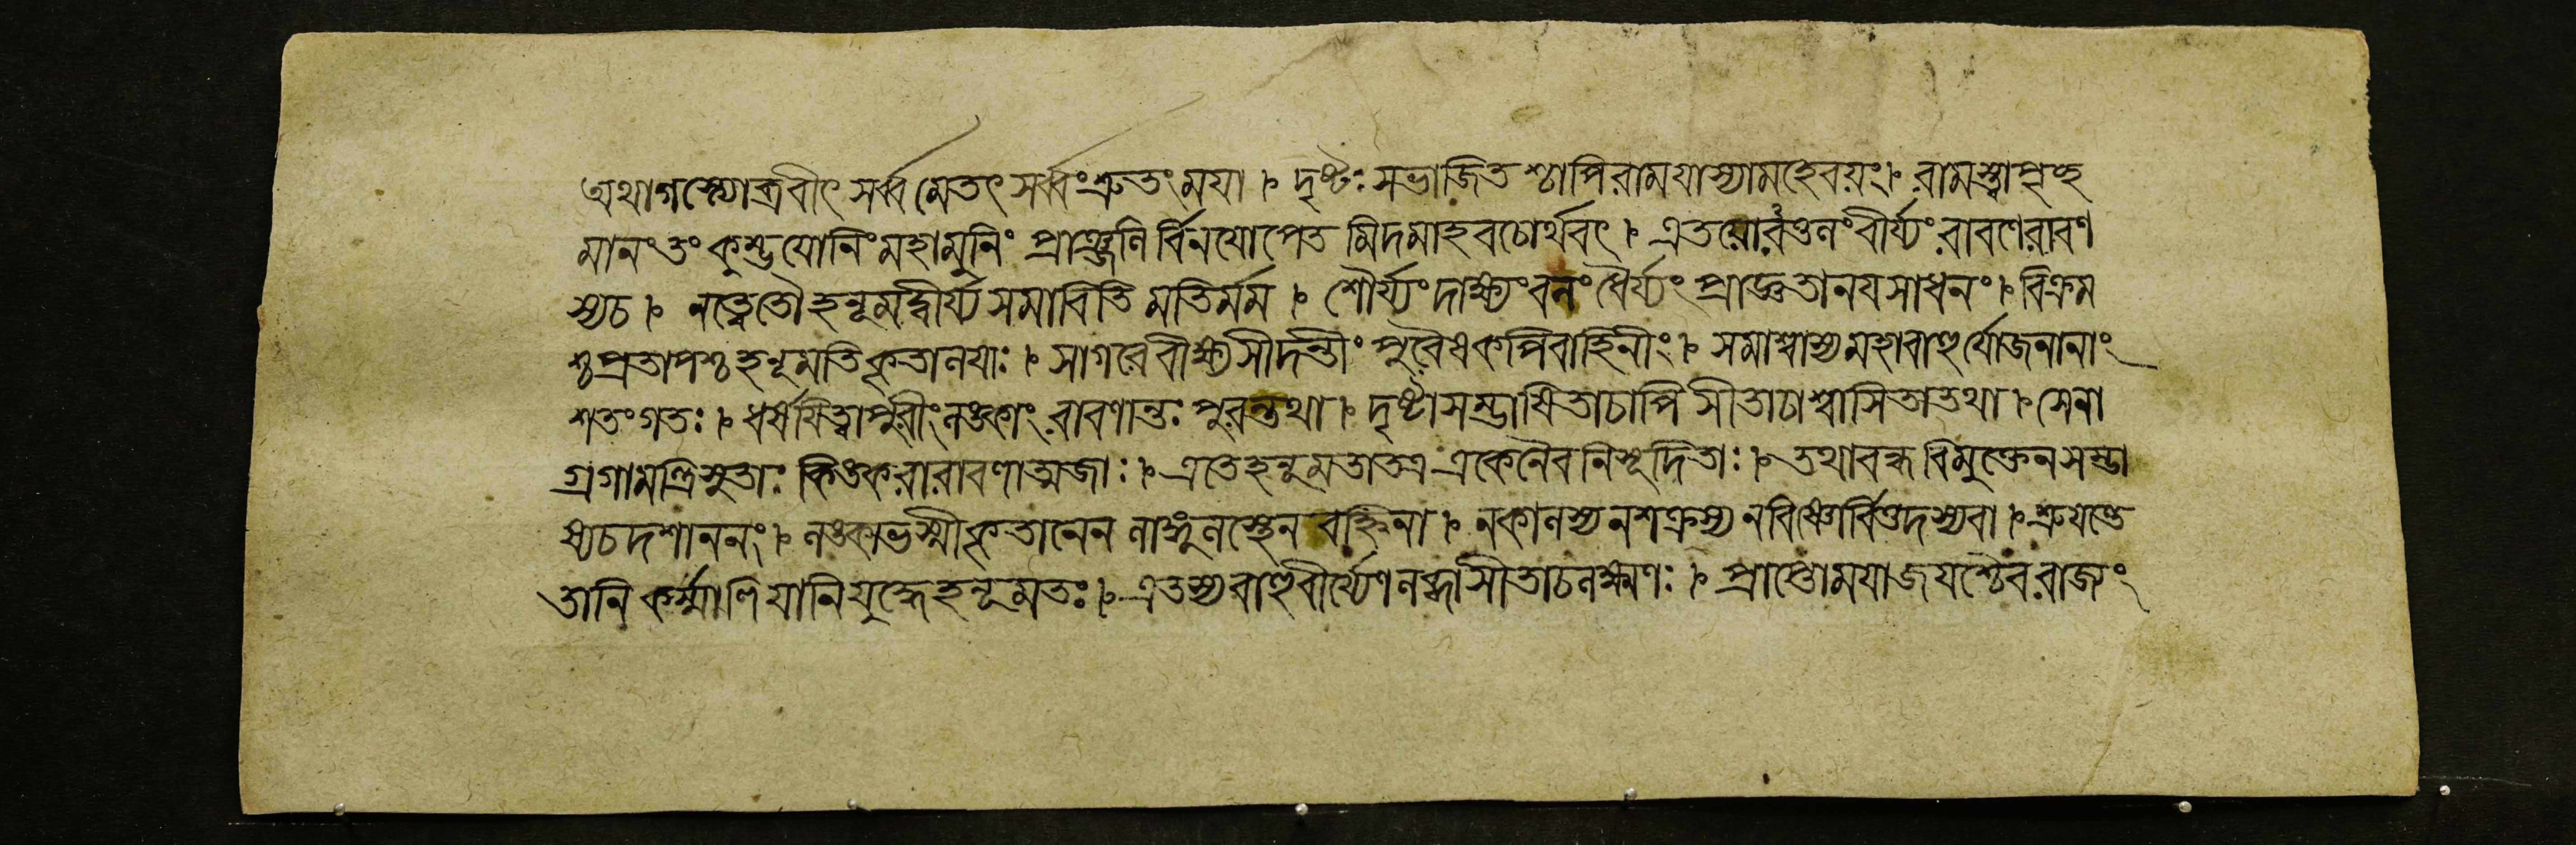 অথাগস্ত্যোব্রবীৎ সর্ব্বমেতৎ সর্ব্বং শ্রুতং ময়া । দৃষ্টঃ সভাজিত শ্চাপি রাম যাস্যামহে বয়ং । রামস্ত্বাপৃচ্ছ
মানং তং কুম্ভযোনিং মহামুনিং প্রাঞ্জলি র্বিনয়োপেত মিদমাহ বচোর্থবৎ । এতয়োরতুলং বীর্য্যং রাবণেরাবণ
স্যচ । নত্বেতৌ হনূমদ্বীর্য্য সমাবিতি মতির্মম । শৌর্য্যং দাক্ষ্যং বলং ধৈর্য্যং প্রাজ্ঞতানয়সাধনং । বিক্রম
শ্চ প্রতাপশ্চ হনূমতিকৃতালয়াঃ । সাগরে বীক্ষ্য সীদন্তীং পুরৈব কপিবাহিনীং । সমাশ্বাস্য মহাবাহুর্যোজনানাং
শতং গতঃ । ধর্ষয়িত্বাপুরীং লঙ্কাং রাবণান্তঃ পুরন্তথা । দৃষ্টা সম্ভাষিতাচাপি সীতাচাশ্বাসিতা তথা । সেনা
গ্রগামন্ত্রিসুতাঃ কিঙ্করারাবণাত্মজাঃ । এতে হনূমতাতত্র একেনৈব নিসূদিতাঃ । তথাবন্ধ বিমুক্তেন সম্ভা
ষ্যচ দশাননং । লঙ্কাভস্মীকৃতানেন লাঙ্গুলস্থেন বহ্নিনা । নকালস্য নশক্রস্য নবিষ্ণোর্বিত্তদস্যবা । শ্রুয়ন্তে
তানি কর্ম্মাণি যানি যুদ্ধে হনূমতঃ । এতস্য বাহুবীর্য্যেণ লব্ধাসীতাচলক্ষ্মণঃ । প্রাপ্তোময়া জয়শ্চৈব রাজ্যং